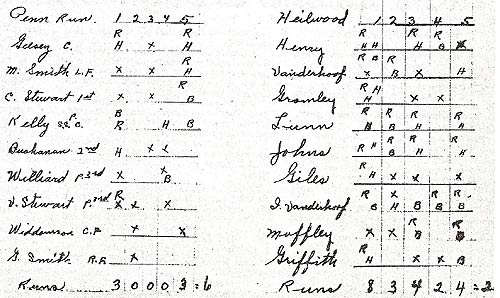 Penn Run. 1 2 3 4 5
R R
Gelsey C. H x H
R
M. Smith L.F. x x H
R
C. Stewart 1st x x B
B
Kelly SS P.C. R H B
Buchanan 2nd H x x
Williard P. 3rd x x B
R
V. Stewart P. 3rd x x x
Widdowson C.F x x
G. Smith R.F. x
Runs 3 0 0 0 3 = 6
Heilwood 1 2 3 4 5
R R R
Henry H H H B x
R B R
Vanderhoof x B x H
R H
Gromley H x x
R R R R
Lunn B B H H H
R R R
Johns R H B H H
R
Giles H x x x
R x R R
D. Vanderhoof B H B B B
R R
Moffley x x B B
R
Griffith H x x B
Runs 8 3 4 2 4 = 2